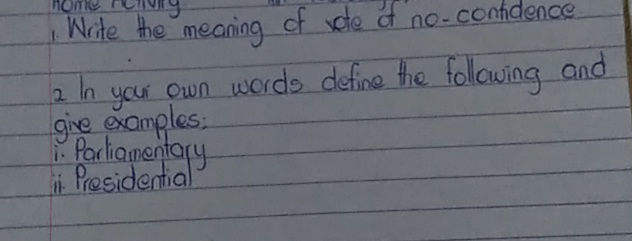 Home Activity
1. Write the meaning of vote of no-confidence
2 In your own words define the following and
give examples:
i. Parliamentary
ii. Presidential